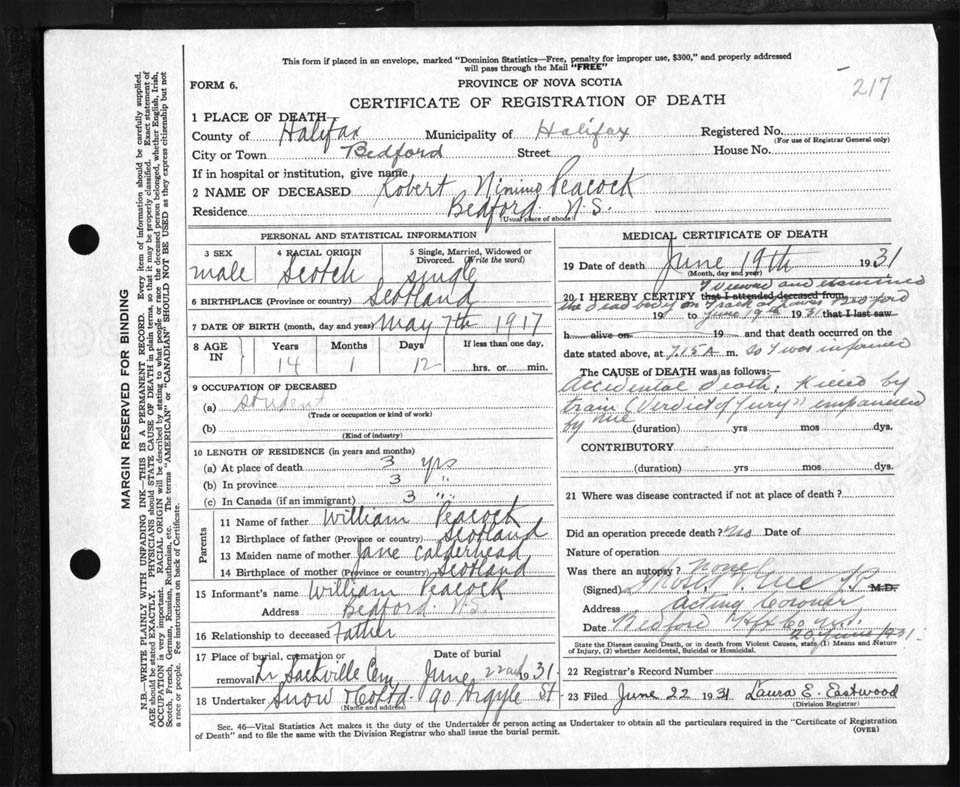 217
This form if placed in an envelope, marked "Dominion Statistics—Free, penalty for improper use, $300," and properly addressed
will pass through the Mail "FREE"
FORM 6.
PROVINCE OF NOVA SCOTIA
CERTIFICATE OF REGISTRATION OF DEATH
1 PLACE OF DEATH
County of Halifax Municipality of Halifax Registered No.
(For use of Registrar General only)
City or Town Bedford Street House No.
If in hospital or institution, give name
2 NAME OF DECEASED Robert Peacock
Residence Bedford N.S.
(Usual place of abode)
PERSONAL AND STATISTICAL INFORMATION
3 SEX 4 RACIAL ORIGIN 5 Single, Married, Widowed or Divorced. (Write the word)
male Scotch single
6 BIRTHPLACE (Province or country) Scotland
7 DATE OF BIRTH (month, day and year) May 7th 1917
8 AGE IN Years Months Days If less than one day,
14 1 12 hrs. or min.
9 OCCUPATION OF DECEASED
(a) student
(Trade or occupation or kind of work)
(b)
(Kind of industry)
10 LENGTH OF RESIDENCE (in years and months)
(a) At place of death 3 yrs
(b) In province 3 "
(c) In Canada (if an immigrant) 3 "
Parents
11 Name of father William Peacock
12 Birthplace of father (Province or country) Scotland
13 Maiden name of mother Jane Calderhead
14 Birthplace of mother (Province or country) Scotland
15 Informant's name William Peacock
Address Bedford N.S.
16 Relationship to deceased Father
17 Place of burial, cremation or removal Lr Sackville Cem Date of burial June 22nd 1931
18 Undertaker Snow & Co Ltd 90 Argyle St
(Name and address)
MEDICAL CERTIFICATE OF DEATH
19 Date of death June 19th 1931
(Month, day and year)
I viewed and examined
20 I HEREBY CERTIFY that I attended deceased from
the dead body on Track at Bedford
19 to June 19th 1931 that I last saw
h alive on 19 and that death occurred on the
date stated above, at 7.15 A m. so I was informed
The CAUSE of DEATH was as follows:—
Accidental death, Killed by
train (Verdict of Jury) empanneled
by me
(duration) yrs mos dys.
CONTRIBUTORY
(duration) yrs mos dys.
21 Where was disease contracted if not at place of death?
Did an operation precede death? No Date of
Nature of operation
Was there an autopsy? None
(Signed) M.D.
Address Acting Coroner
Date Bedford Hfx Co N.S. 20 June 1931.
State the Disease causing Death, or in death from Violent Causes, state (1) Means and Nature
of Injury, (2) whether Accidental, Suicidal or Homicidal.
22 Registrar's Record Number
23 Filed June 22 1931 Laura E. Eastwood
(Division Registrar)
Sec. 46—Vital Statistics Act makes it the duty of the Undertaker or person acting as Undertaker to obtain all the particulars required in the "Certificate of Registration
of Death" and to file the same with the Division Registrar who shall issue the burial permit.
(OVER)
MARGIN RESERVED FOR BINDING
N.B.—WRITE PLAINLY WITH UNFADING INK—THIS IS A PERMANENT RECORD. Every item of information should be carefully supplied.
AGE should be stated EXACTLY. PHYSICIANS should STATE CAUSE OF DEATH in plain terms, so that it may be properly classified. Exact statement of
OCCUPATION is very important. RACIAL ORIGIN will be described by stating to what people or race the deceased person belonged, whether English, Irish,
Scotch, French, German, Russian, Ruthenian, etc. The terms "AMERICAN" or "CANADIAN" SHOULD NOT BE USED as they express citizenship but not
a race or people. Fee instructions on back of Certificate.